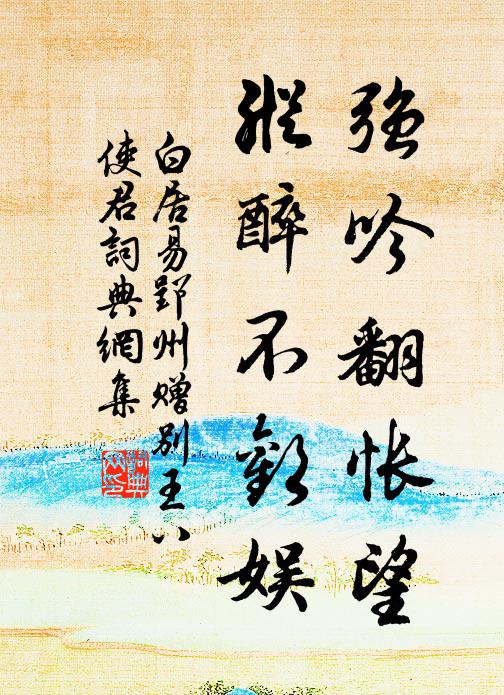 强吟翻怅望
縱醉不歡娱
白居易郢州赠别王八
使君詞典網集